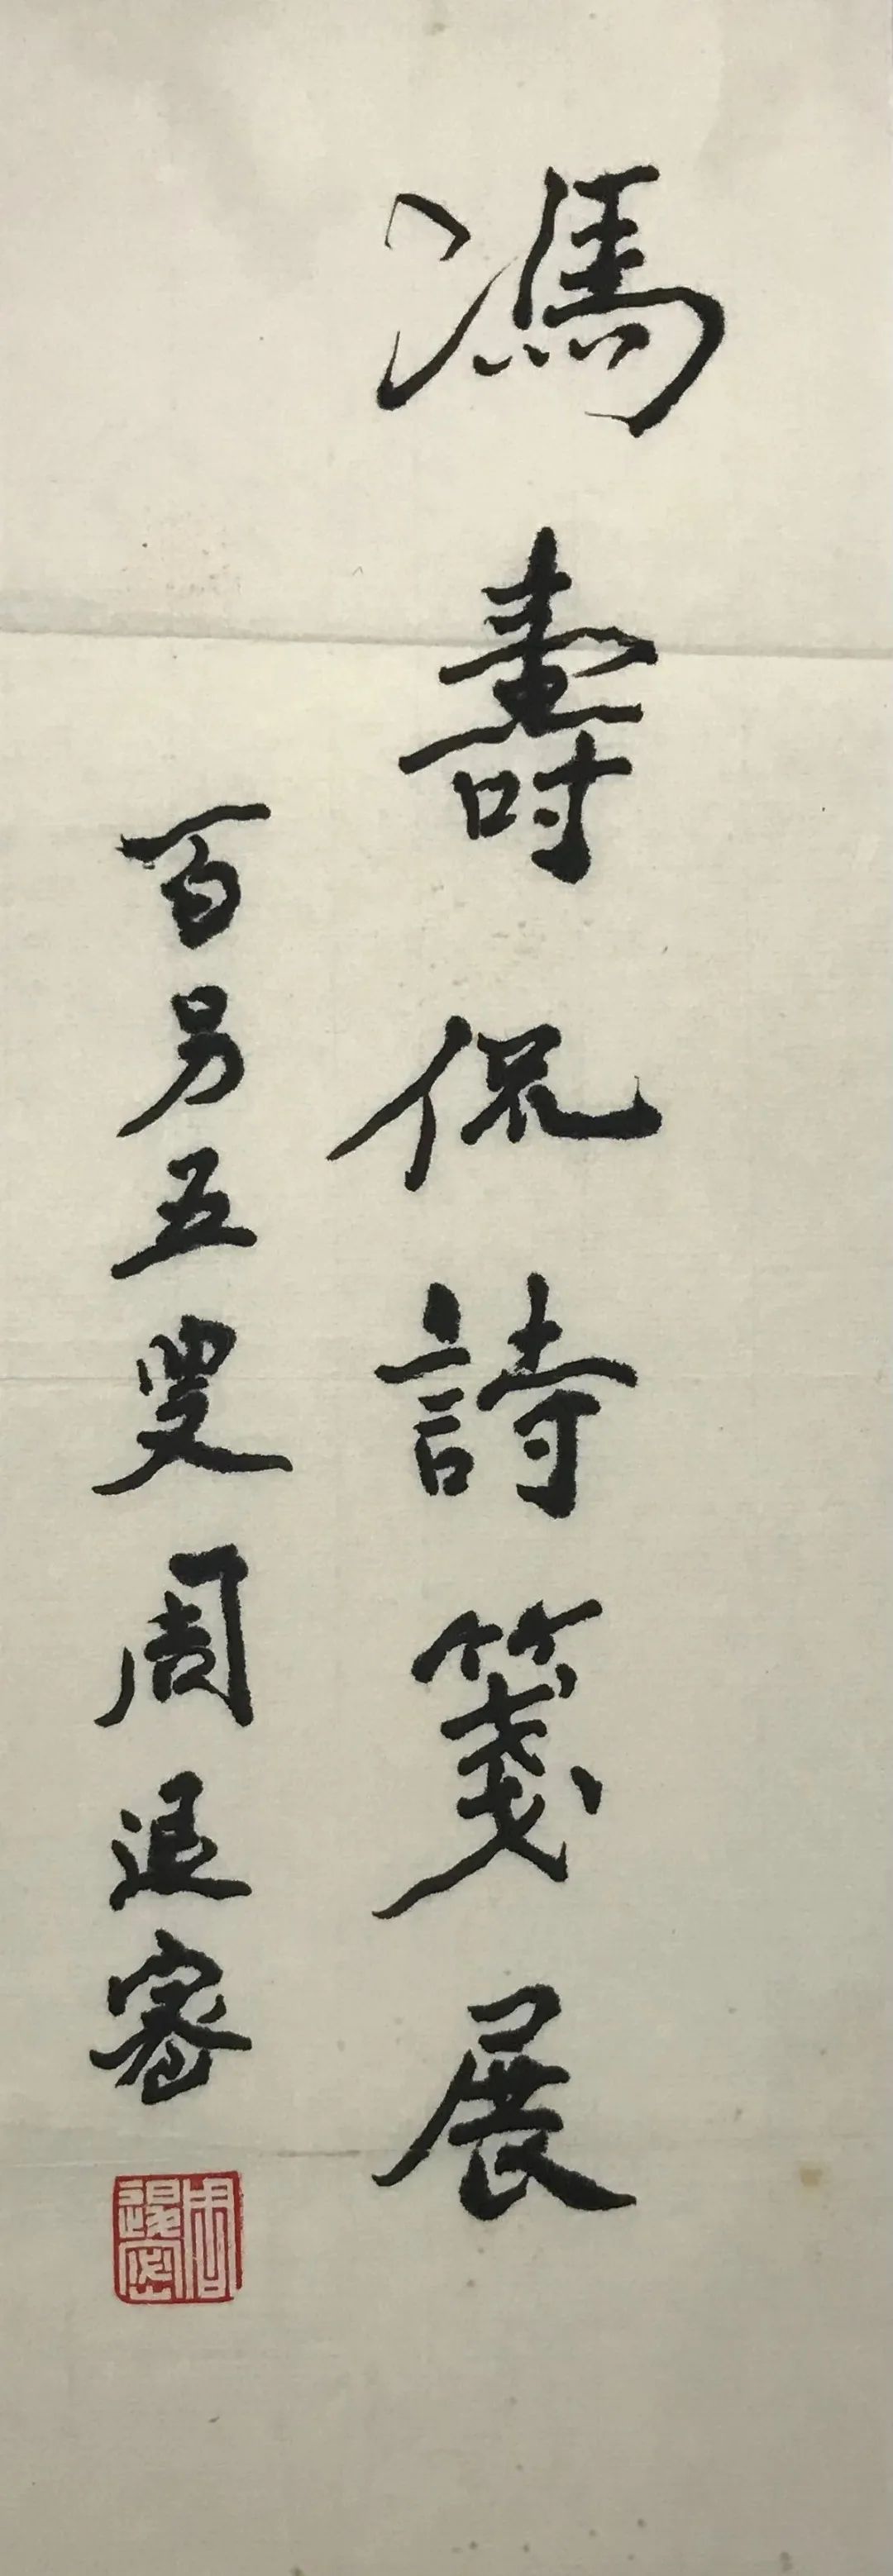 馮壽侃詩箋展
百另五叟周退密
周退密